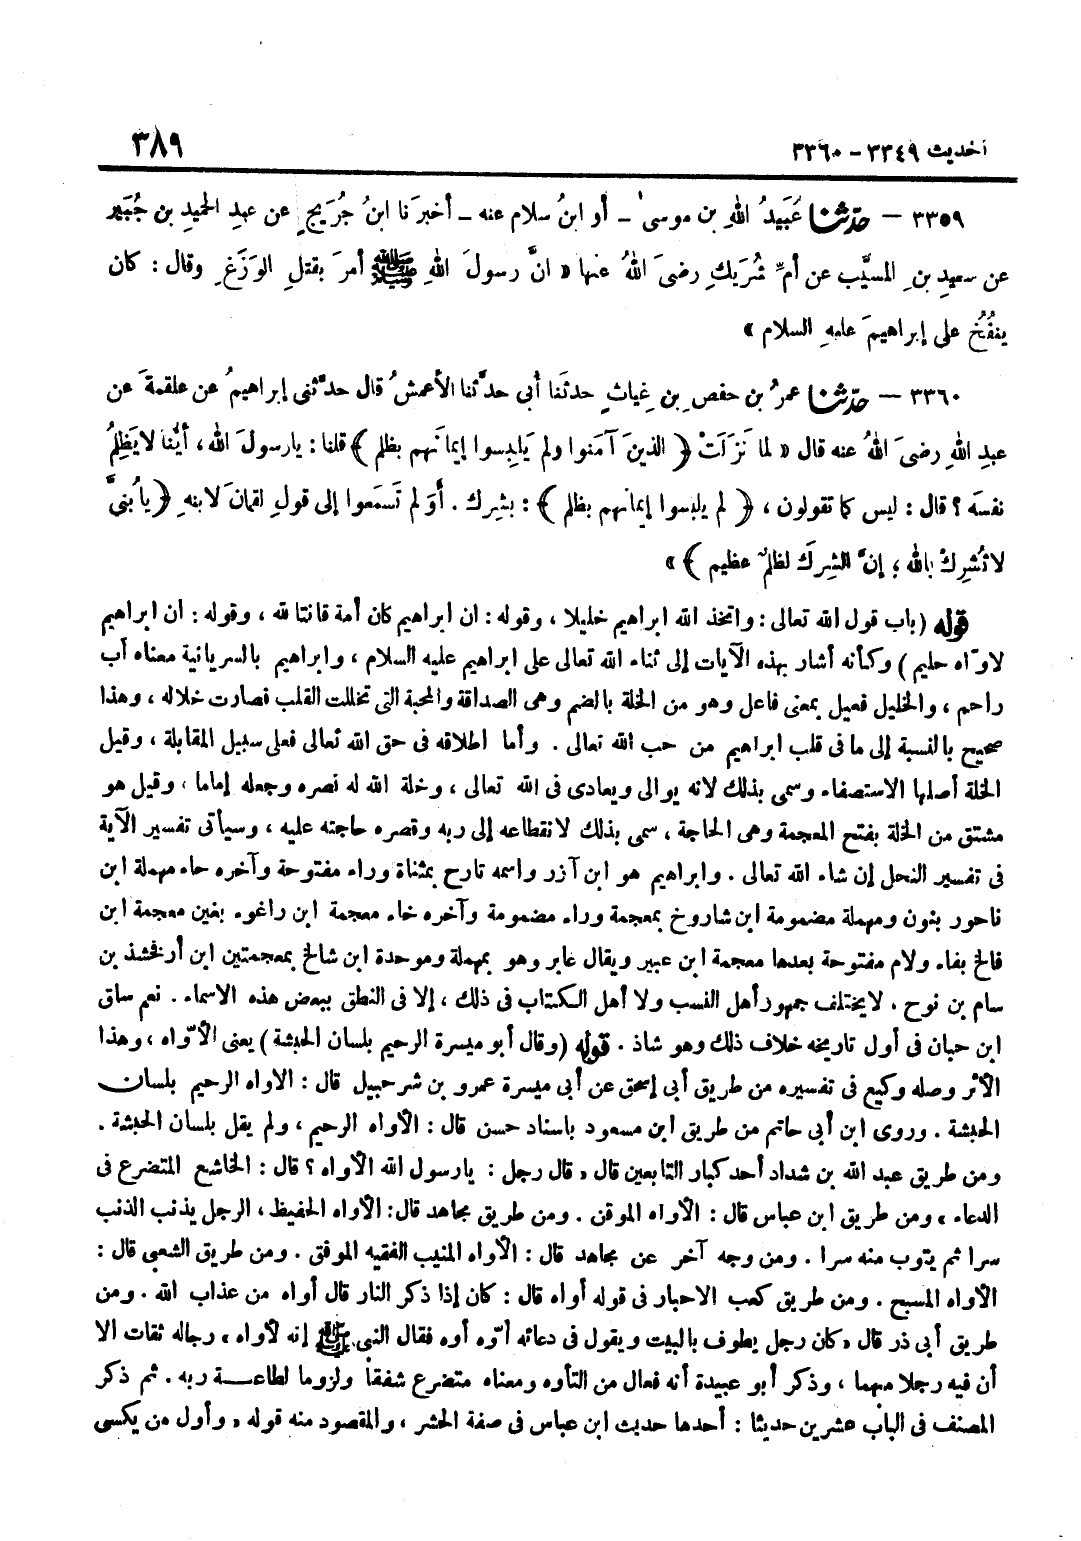 أحديث ٣٣٤٩ - ٣٣٦٠
٣٨٩
٣٣٥٩ - حدّثنا عُبَيدُ اللهِ بن موسىٰ - أو ابنُ سلام عنه - أخبرَنا ابنُ جُرَيجٍ عن عبدِ الحميدِ بن جُبَير
عن سعيدِ بنِ المسيَّب عن أمِّ شُرَيكٍ رضىَ اللهُ عنها « انَّ رسولَ اللهِ ﷺ أمرَ بقتلِ الوَزَغِ وقال : كان
ينفُخُ على إبراهيمَ عليهِ السلام »
٣٣٦٠ - حدّثنا عمرُ بن حفصِ بنِ غِياثٍ حدثَنا أبي حدَّثنا الأعمشُ قال حدَّثنى إبراهيمُ عن علقمةَ عن
عبدِ اللهِ رضىَ اللهُ عنه قال « لما نَزَلَتْ ﴿ الذينَ آمَنوا ولم يَلبِسوا إيمانَهم بظلم ﴾ قلنا : يارسولَ الله ، أيُّنا لايَظلِمُ
نفسَه ؟ قال : ليس كما تقولون ، ﴿ لم يلبسوا إيمانهم بظلم ﴾ : بشِرك . أوَ لم تَسمَعوا إلى قولِ لقمانَ لابنهِ ﴿ يا بُنىَّ
لاتُشرِكْ بالله ؛ إنَّ الشِركَ لظلمٌ عظيم ﴾ »
قوله ( باب قول الله تعالى : واتخذ الله ابراهيم خليلا ، وقوله : ان ابراهيم كان أمة قانتا لله ، وقوله : ان ابراهيم
لاوّاه حليم ) وكأنه أشار بهذه الآيات إلى ثناء الله تعالى على ابراهيم عليه السلام ، وابراهيم بالسريانية معناه أب
راحم ، والخليل فعيل بمعنى فاعل وهو من الخلة بالضم وهى الصداقة والمحبة التى تخللت القلب فصارت خلاله ، وهذا
صحيح بالنسبة إلى ما فى قلب ابراهيم من حب الله تعالى . وأما اطلاقه فى حق الله تعالى فعلى سبيل المقابلة ، وقيل
الخلة أصلها الاستصفاء وسمى بذلك لانه يوالى ويعادى فى الله تعالى ، وخلة الله له نصره وجعله إماما ، وقيل هو
مشتق من الخلة بفتح المعجمة وهى الحاجة ، سمى بذلك لانقطاعه إلى ربه وقصره حاجته عليه ، وسيأتى تفسير الآية
فى تفسير النحل إن شاء الله تعالى . وابراهيم هو ابن آزر واسمه تارح بمثناة وراء مفتوحة وآخره حاء مهملة ابن
ناحور بنون ومهملة مضمومة ابن شاروخ بمعجمة وراء مضمومة وآخره خاء معجمة ابن راغوء بغين معجمة ابن
فالخ بفاء ولام مفتوحة بعدها معجمة ابن عبير ويقال عابر وهو بمهملة وموحدة ابن شالخ بمعجمتين ابن أرفخشذ بن
سام بن نوح . لايختلف جمهور أهل النسب ولا أهل الكتاب فى ذلك ، إلا فى النطق ببعض هذه الاسماء . نعم ساق
ابن حبان فى أول تاريخه خلاف ذلك وهو شاذ . قوله ( وقال أبو ميسرة الرحيم بلسان الحبشة ) يعنى الأوّاه ، وهذا
الأثر وصله وكيع فى تفسيره من طريق أبى إسحق عن أبى ميسرة عمرو بن شرحبيل قال : الاواه الرحيم بلسان
الحبشة . وروى ابن أبى حاتم من طريق ابن مسعود باسناد حسن قال : الأواه الرحيم ، ولم يقل بلسان الحبشة .
ومن طريق عبد الله بن شداد أحد كبار التابعين قال « قال رجل : يارسول الله الأواه ؟ قال : الخاشع المتضرع فى
الدعاء » ومن طريق ابن عباس قال : الأواه الموقن . ومن طريق مجاهد قال : الأواه الحفيظ ، الرجل يذنب الذنب
سرا ثم يتوب منه سرا . ومن وجه آخر عن مجاهد قال : الأواه المنيب الفقيه الموفق . ومن طريق الشعبى قال :
الأواه المسبح . ومن طريق كعب الاحبار فى قوله أواه قال : كان إذا ذكر النار قال أواه من عذاب الله . ومن
طريق أبى ذر قال « كان رجل يطوف بالبيت ويقول فى دعائه أوّه أوه فقال النبى ﷺ إنه لأواه » رجاله ثقات الا
أن فيه رجلا مبهما ، وذكر أبو عبيدة أنه فعال من التأوه ومعناه متضرع شفقا ولزوما لطاعة ربه . ثم ذكر
المصنف فى الباب عشرين حديثا : أحدها حديث ابن عباس فى صفة الحشر ، والمقصود منه قوله « وأول من يكسى